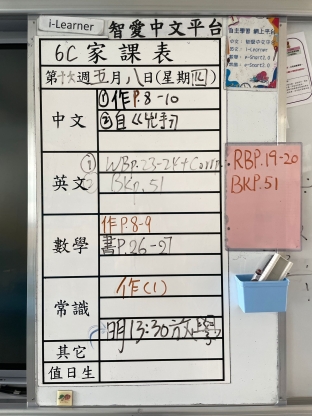 i-Learner 智愛中文平台
6C 家課表
第十六週五月八日(星期四)
中文
①作P.8-10
②自
英文
① WBp.23-24+Corr
② BKp.51
數學
作P.8-9
書P.26-27
常識
作(1)
明13:30放學
其它
值日生
自主學習 網上平台
RBP.19-20
BKP.51